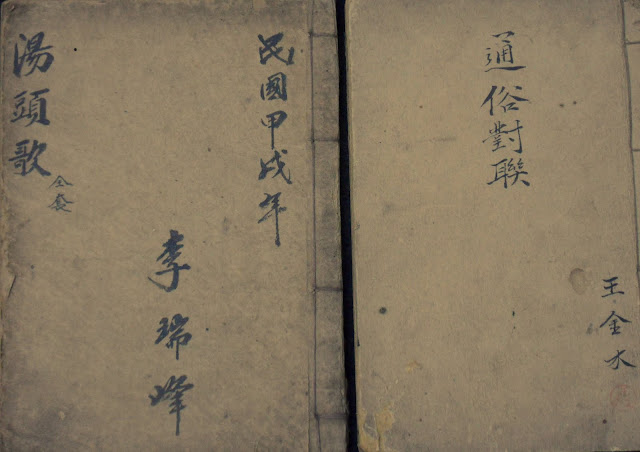 民國甲戌年
李瑞峰
湯頭歌
全套
通俗對聯
王金木